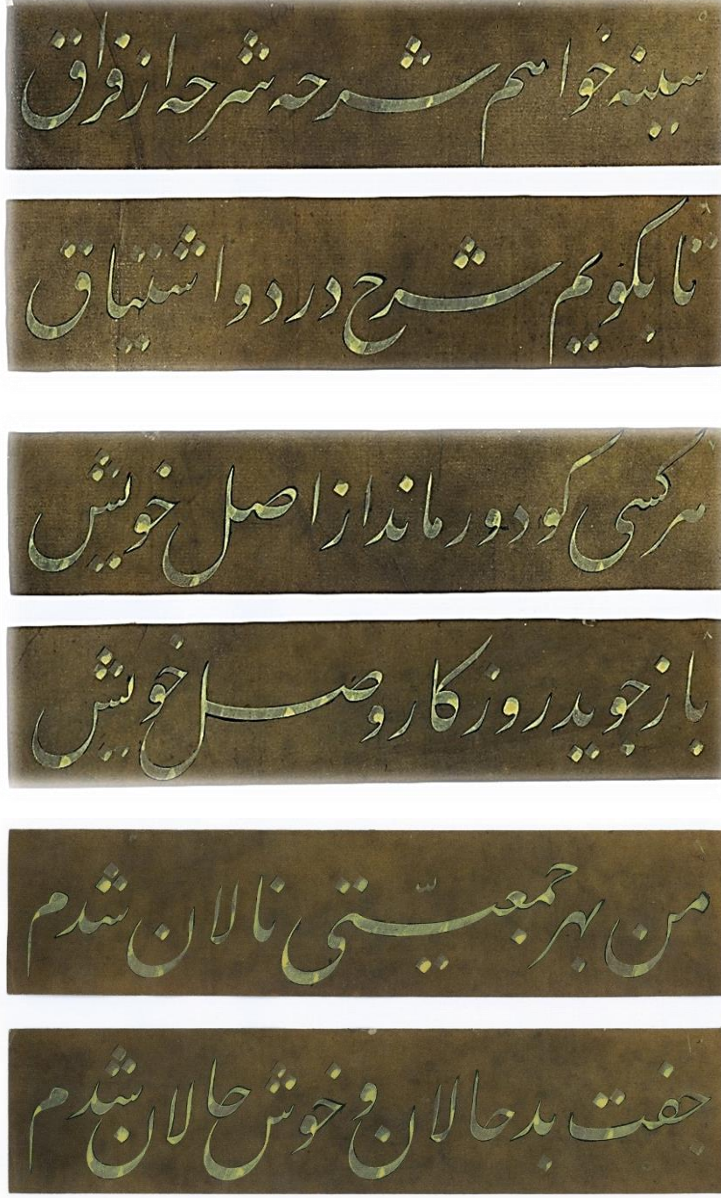 سینه خواهم شرحه شرحه از فراق
تا بکویم شرح درد و اشتیاق
هر کسی کو دور ماند از اصل خویش
باز جوید روزکار وصل خویش
من بهر جمعیّتی نالان شدم
جفت بدحالان و خوش حالان شدم